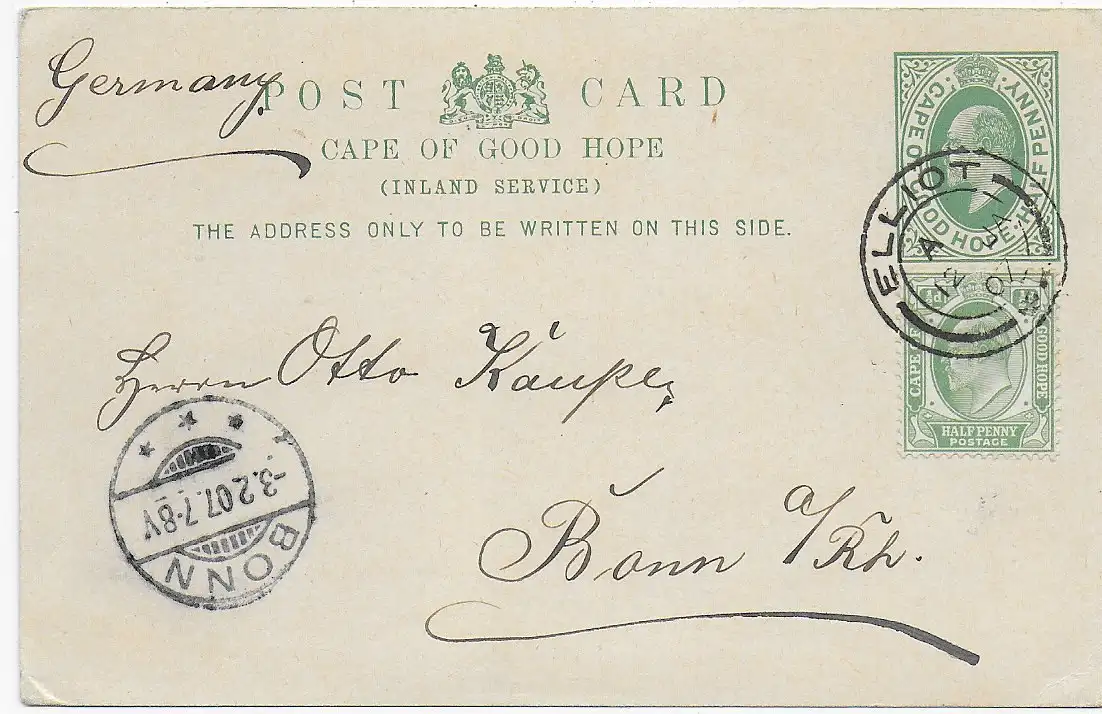 Germany.
POST CARD
CAPE OF GOOD HOPE
(INLAND SERVICE)
THE ADDRESS ONLY TO BE WRITTEN ON THIS SIDE.
CAPE OF GOOD HOPE HALF PENNY
ELLIOT
A
JA 12
07
½d
CAPE OF GOOD HOPE
HALFPENNY
POSTAGE
Herrn Otto
Bonn a/Rh.
-3.2.07.7-8V
BONN